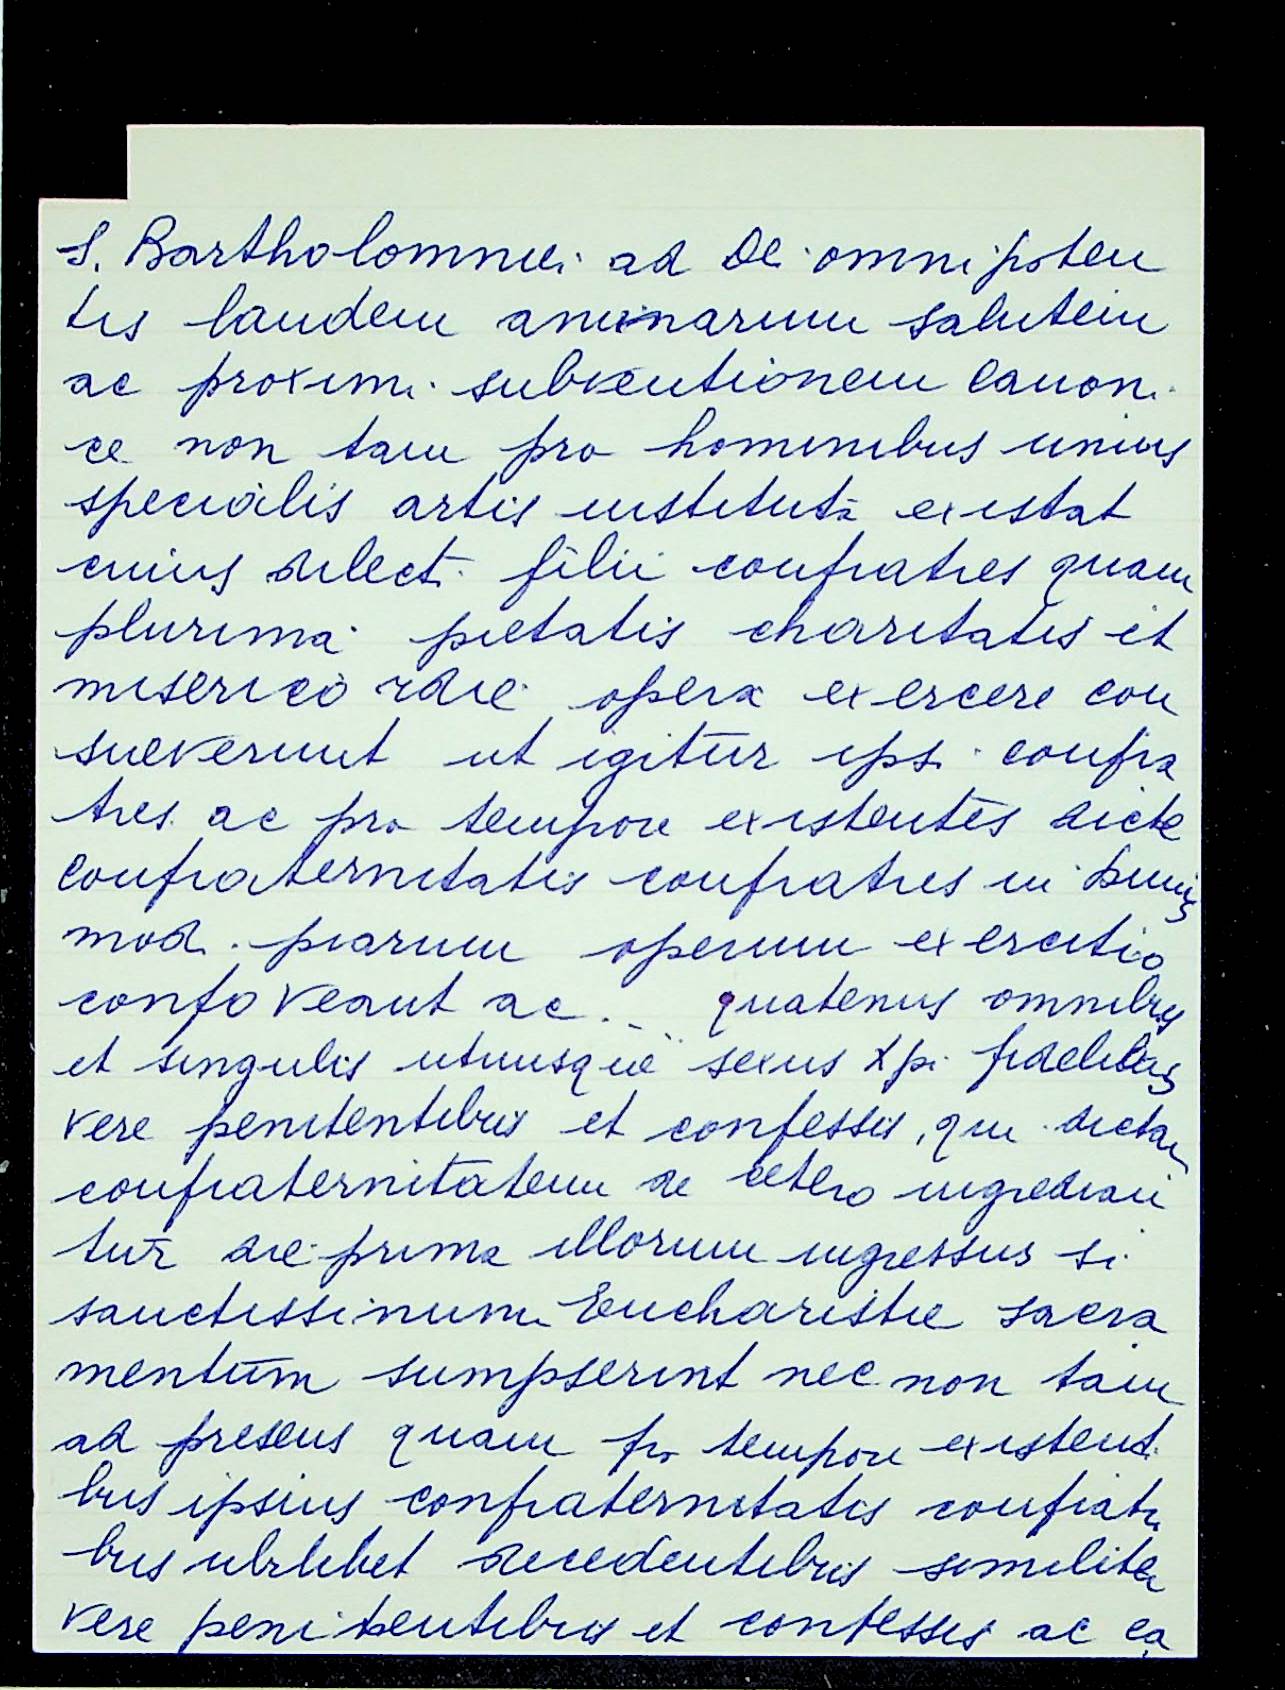 S. Bartholomuei ad Dei omnipoten
tis laudem animarum salutem
ac proximi subventionem canoni
ce non tam pro hominibus unius
specialis artis instituta existat
cuius dilecti filii confratres quam
plurima pietatis charitatis et
misericordie opera exercere con
sueverunt ut igitur ipsi confra
tres ac pro tempore existentes dicte
confraternitatis confratres in huius
modi piarum operum exercitio
confoveant ac... quatenus omnibus
et singulis utriusque sexus Xpi fidelibus
vere penitentibus et confessis, qui dictam
confraternitatem de cetero ingredian
tur die prima illorum ingressus si
sanctissimum Eucharistie sacra
mentum sumpserint nec non tam
ad presens quam pro tempore existenti
bus ipsius confraternitatis confratri
bus ubilibet decedentibus similiter
vere penitentibus et confessis ac ea